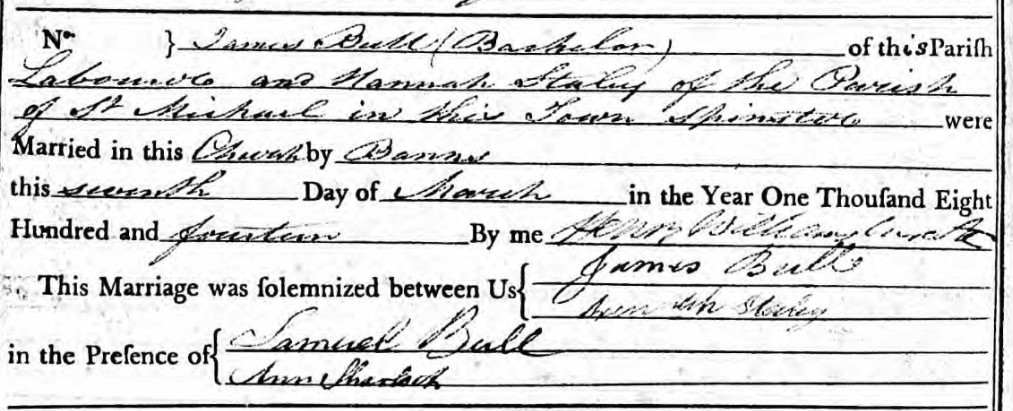 No } James Bull (Bachelor) of this Pariſh
Labourer and Hannah Staley of the Parish
of St Michael in this Town Spinster were
Married in this Church by Banns
this seventh Day of March in the Year One Thouſand Eight
Hundred and fourteen By me Henry
James Bull
This Marriage was ſolemnized between Us{
Staley
Samuel Bull
in the Preſence of{
Ann